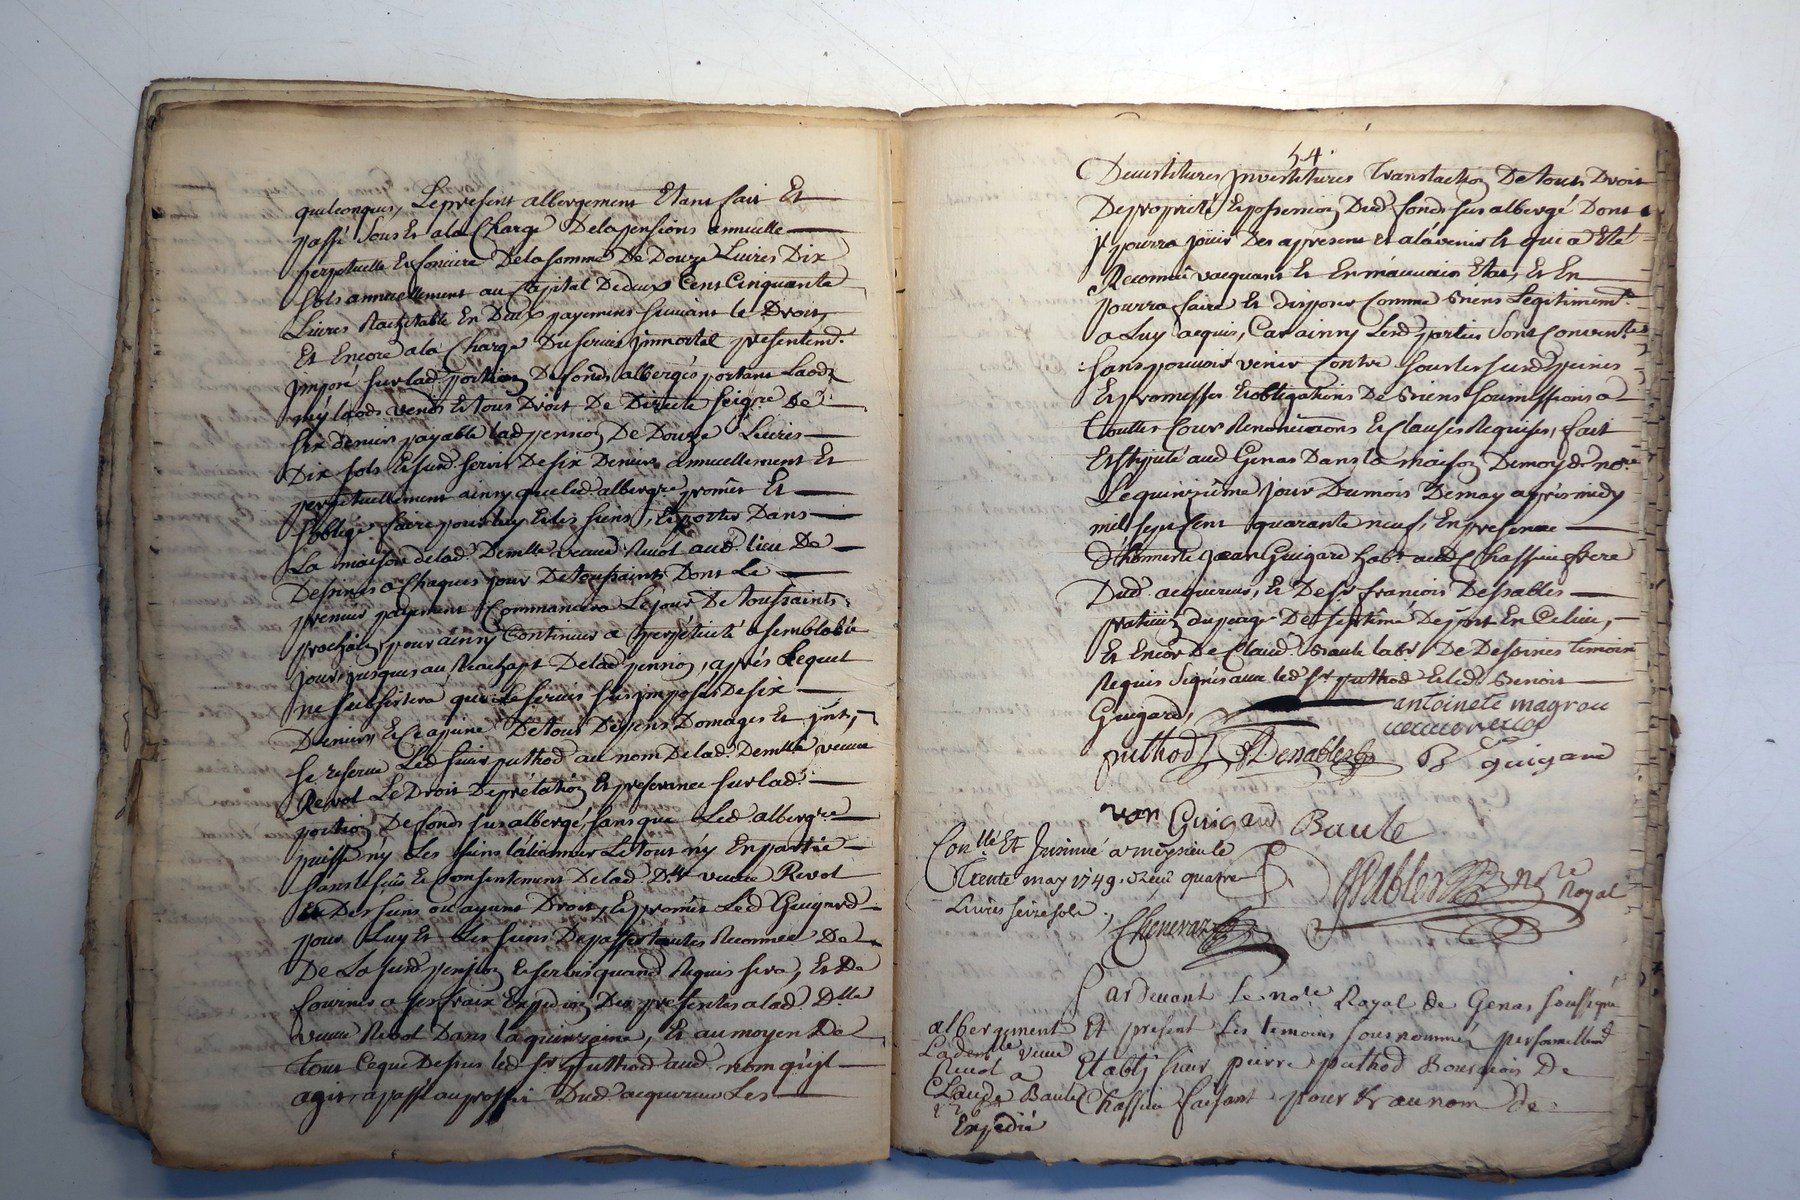 quelconques, Le present albergement Etant fait Et
passé sous Et ala Charge Dela pensions annuelle
perpetuelle Et fonciere Dela somme De Douze Livres Dix
sols annuellement au Capital De deux Cent Cinquante
Livres Rachetable En Deux payemins suivant le Droit,
Et Encore ala Charge Du servis jmmortel presentemt.
jmposé sur lad. portion De fonds albergés portant Laods
my laods vends Et tous Droit De Directe seigre. De
six deniers payable lad pension De Douze Livres
Dix sols Et susd. servis De six Deniers annuellement Et
perpetuellement ainsy que led albergre promet Et
soblige faire pour luy Et les siens, Et porter Dans
La maison delad. Demlle veuve Revol aud. lieu De
Dessines a Chaques jour De toussaints Dont Le
premier payement Commancera Le jour De toussaints
prochain, pour ainsy Continuer a perpétuité a semblable
jour, jusques au Rachapt Delad pension, après Lequel
ne subsistera que Le servis sus jmposé De six
Deniers Et a peine De tous Depens Domages Et jnts,
se reserve Led sieur puthod au nom Delad. Demlle veuve
Revol Le Droit De prélation Et preferance sur lad.
portion De fonds sus albergé, sans que Led albergre
puisse n'y Les siens laliéner Le tout n'y En partie
sans le sçu Et Consentement Delad Dlle veuve Revol
Des siens ou ayant Droit, Et promet Led Guigard
pour Luy Et Les siens De passer toutes Reconnce De
De La susd pension Et servis quand Requis sera, Et De
fournir a ses fraix Expedion Des presentes a lad Dlle
veuve Revol Dans la quinzaine, Et au moyen De
tout Ce que Dessus led sr puthod aud. nom qu'jl
agit, a passé au proffit Dud acquereur Les
54.
Devestitures jnvestitures Translaction De tous Droit
De proprieté Et possession Dud. fonds sus albergé Dont
jl pourra joüir Des apresent Et alávenir Et que a Eté
Reconnu vacquant Et En mauvais Etat, Et En
pourra faire Et disposer Comme Biens Legitiment.
a Luy acquis, Car ainsy Lesd parties sont Convenües
sans pouvoir venir Contre sous les susd peines
Et promesses Et obligations De Biens soumissions a
touttes Cours Renonciations Et Clauses Requises, fait
Et stipulé aud Genas Dans la maison De moy d. nore
Le quinzième jour Du mois De may après midy
mil sept Cent quarante neuf, En presence
D'honneste jean Guigard habt. aud. Chassieu frere
Dud. acquereur, Et De sr françois Desables
praticien du De septème De port En Ce lieu,
Et Encor De Claud. Baule labr. De Dessines temoins
Requis signés avec led sr puthod Et led. Benoit
Guigard,
antoinete magrou
veuve revol
puthod Desables B Guigard
van Guigard Baule
Conllé Et Insinué a meysieule
Trente may 1749. Receu quatre
Livres seize sols
Chenevaz
Desables nore Royal
Pardevant Le nore. Royal de Genas soussigné
Et present Les temoins sousnommés personnellemt
Etably sieur pierre puthod Bourgeois De
Chassieu faisant pour & au nom De
albergement
Lademlle veuve
Revol a
Claude Baule
Expedié